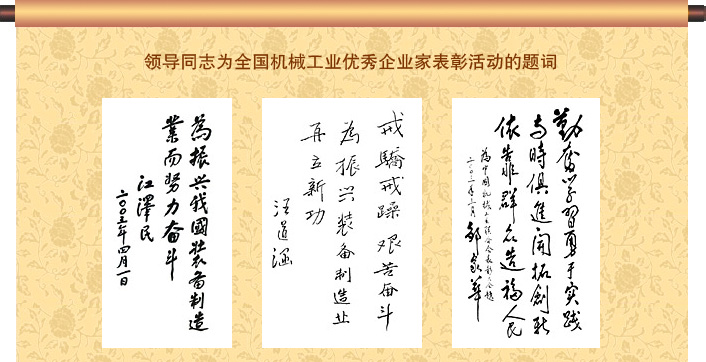 领导同志为全国机械工业优秀企业家表彰活动的题词
為振兴我國装备制造
業而努力奋斗
江澤民
二〇〇三年四月一日
戒驕戒躁艰苦奋斗
為振兴装备制造业
再立新功
汪道涵
勤奋学習勇于实践
与時俱進開拓創新
依靠群众造福人民
為中国机械工
二〇〇三年三月 邹家华